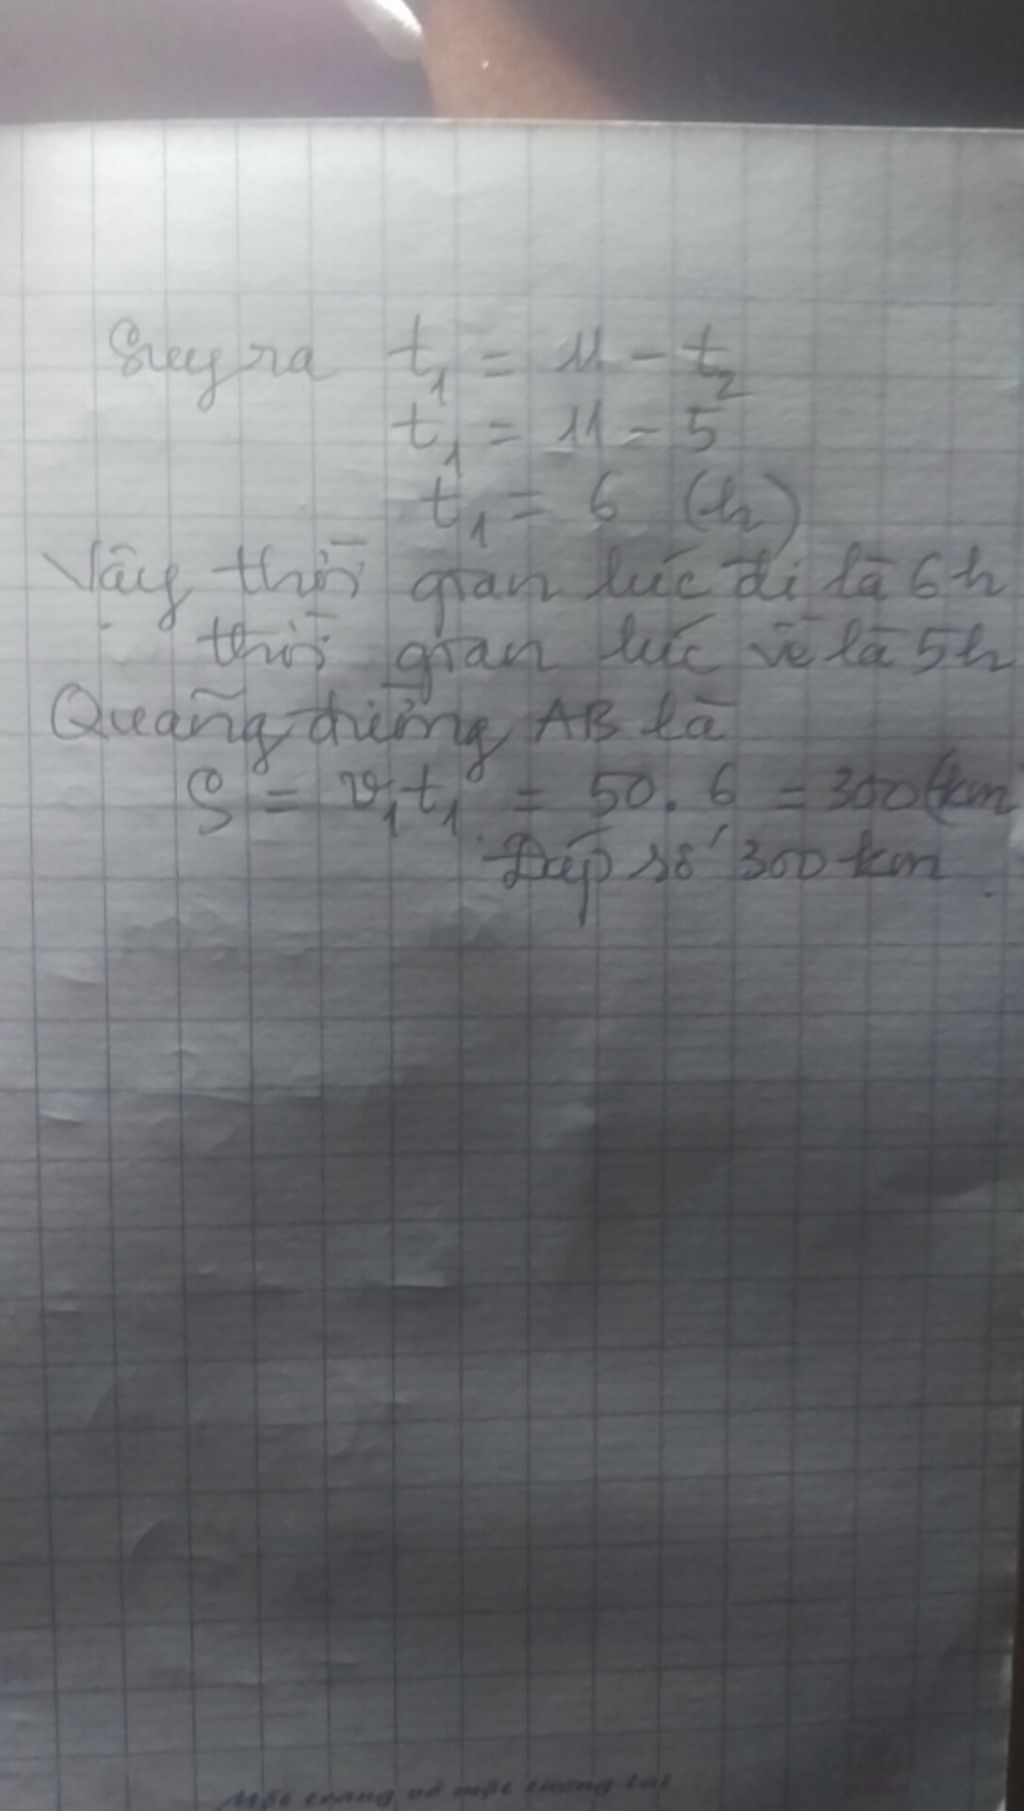 Suy ra t₁ = 11 - t₂
t₁ = 11 - 5
t₁ = 6 (h)
Vậy thời gian lúc đi là 6h
thời gian lúc về là 5h
Quãng đường AB là
S = v₁t₁ = 50.6 = 300(km
Đáp số 300km